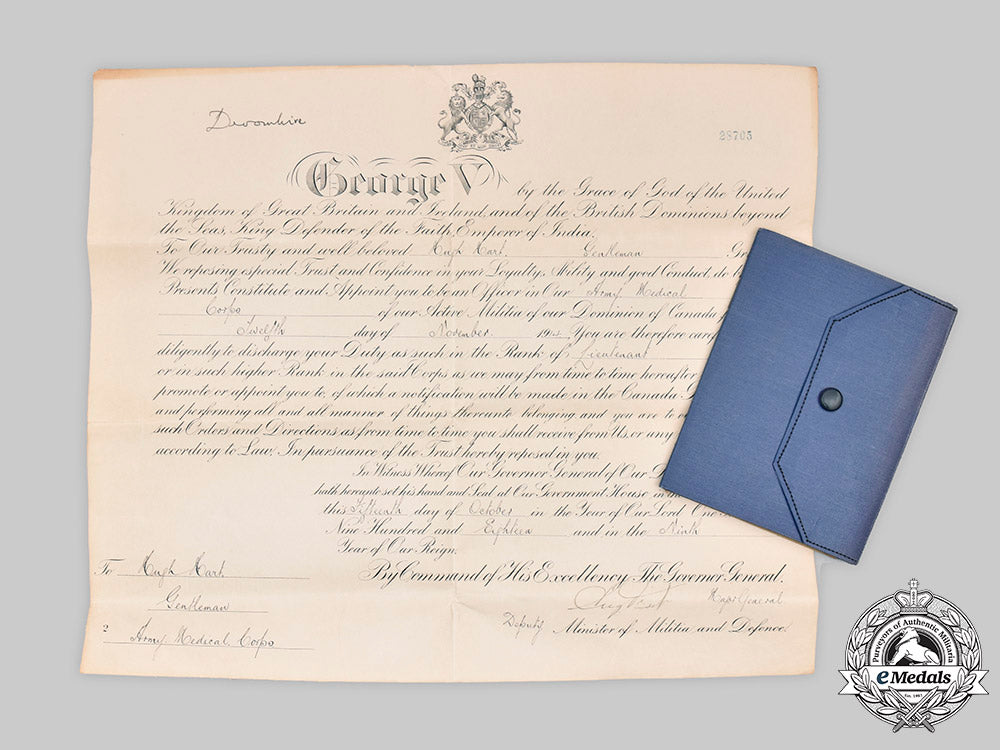 Devonshire
28705
George V by the Grace of God of the United
Kingdom of Great Britain and Ireland, and of the British Dominions beyond
the Seas, King Defender of the Faith Emperor of India.
To Our Trusty and well beloved Hugh Hart. Gentleman Gr
We reposing especial Trust and Confidence in your Loyalty, Ability and good Conduct, do
Presents Constitute and Appoint you to be an Officer in Our Army Medical
Corps of our Active Militia of our Dominion of Canada
Twelfth day of November. You are therefore
diligently to discharge your Duty as such in the Rank of Lieutenant
or in such higher Rank in the said Corps as we may from time to time hereafter
promote or appoint you to, of which a notification will be made in the Canada
and performing all and all manner of things thereunto belonging and
such Orders and Directions, as from time to time you shall receive from Us, or any
according to Law, In pursuance of the Trust hereby reposed in you.
In Witness Whereof Our Governor General of Our
hath hereunto set his hand and Seal at Our Government House in
this Fifteenth day of October in the Year of Our Lord One
Nine Hundred and Eighteen and in the Ninth
Year of Our Reign.
To Hugh Hart
By Command of His Excellency The Governor General.
Gentleman
Major General
Deputy Minister of Militia and Defence.
2 Army Medical Corps
Purveyors of Authentic Militaria
eMedals